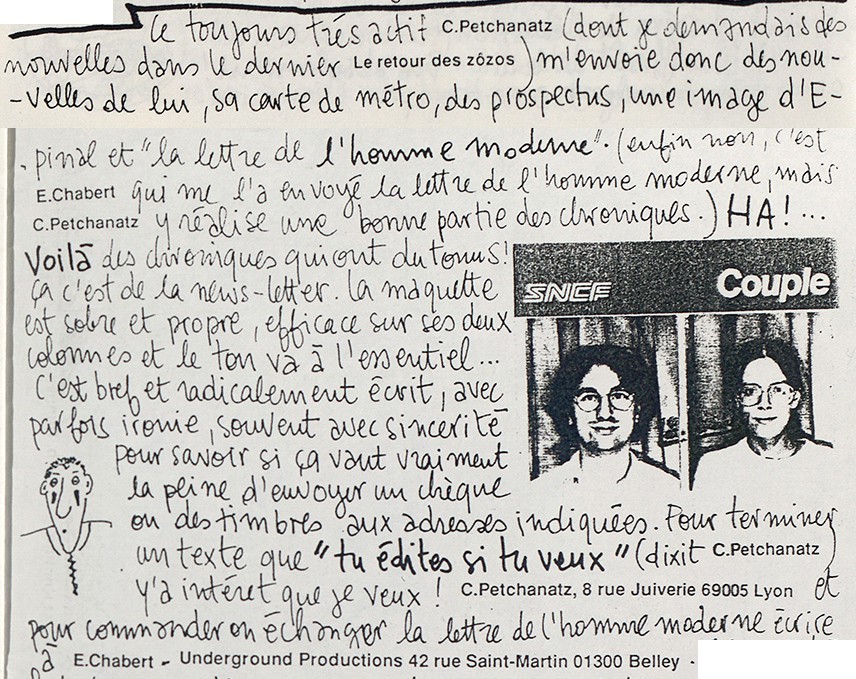 Ce toujours très actif C.Petchanatz (dont je demandais des
nouvelles dans le dernier Le retour des zôzos) m'envoie donc des nou-
-velles de lui, sa carte de métro, des prospectus, une image d'E-
.pinal et "la lettre de l'homme moderne". (enfin non, c'est
E.Chabert qui me l'a envoyé la lettre de l'homme moderne, mais
C.Petchanatz y réalise une bonne partie des chroniques.) HA!...
Voilà des chroniques qui ont du tonus!
ça c'est de la news-letter. la maquette
est sobre et propre, efficace sur ses deux
colonnes et le ton va à l'essentiel...
C'est bref et radicalement écrit, avec
parfois ironie, souvent avec sincérité
pour savoir si ça vaut vraiment
la peine d'envoyer un chèque
ou des timbres aux adresses indiquées. Pour terminer
un texte que "tu édites si tu veux" (dixit C.Petchanatz)
y'a intéret que je veux! C.Petchanatz, 8 rue Juiverie 69005 Lyon et
pour commander ou échanger la lettre de l'homme moderne écrire
à E.Chabert - Underground Productions 42 rue Saint-Martin 01300 Belley -
SNCF Couple